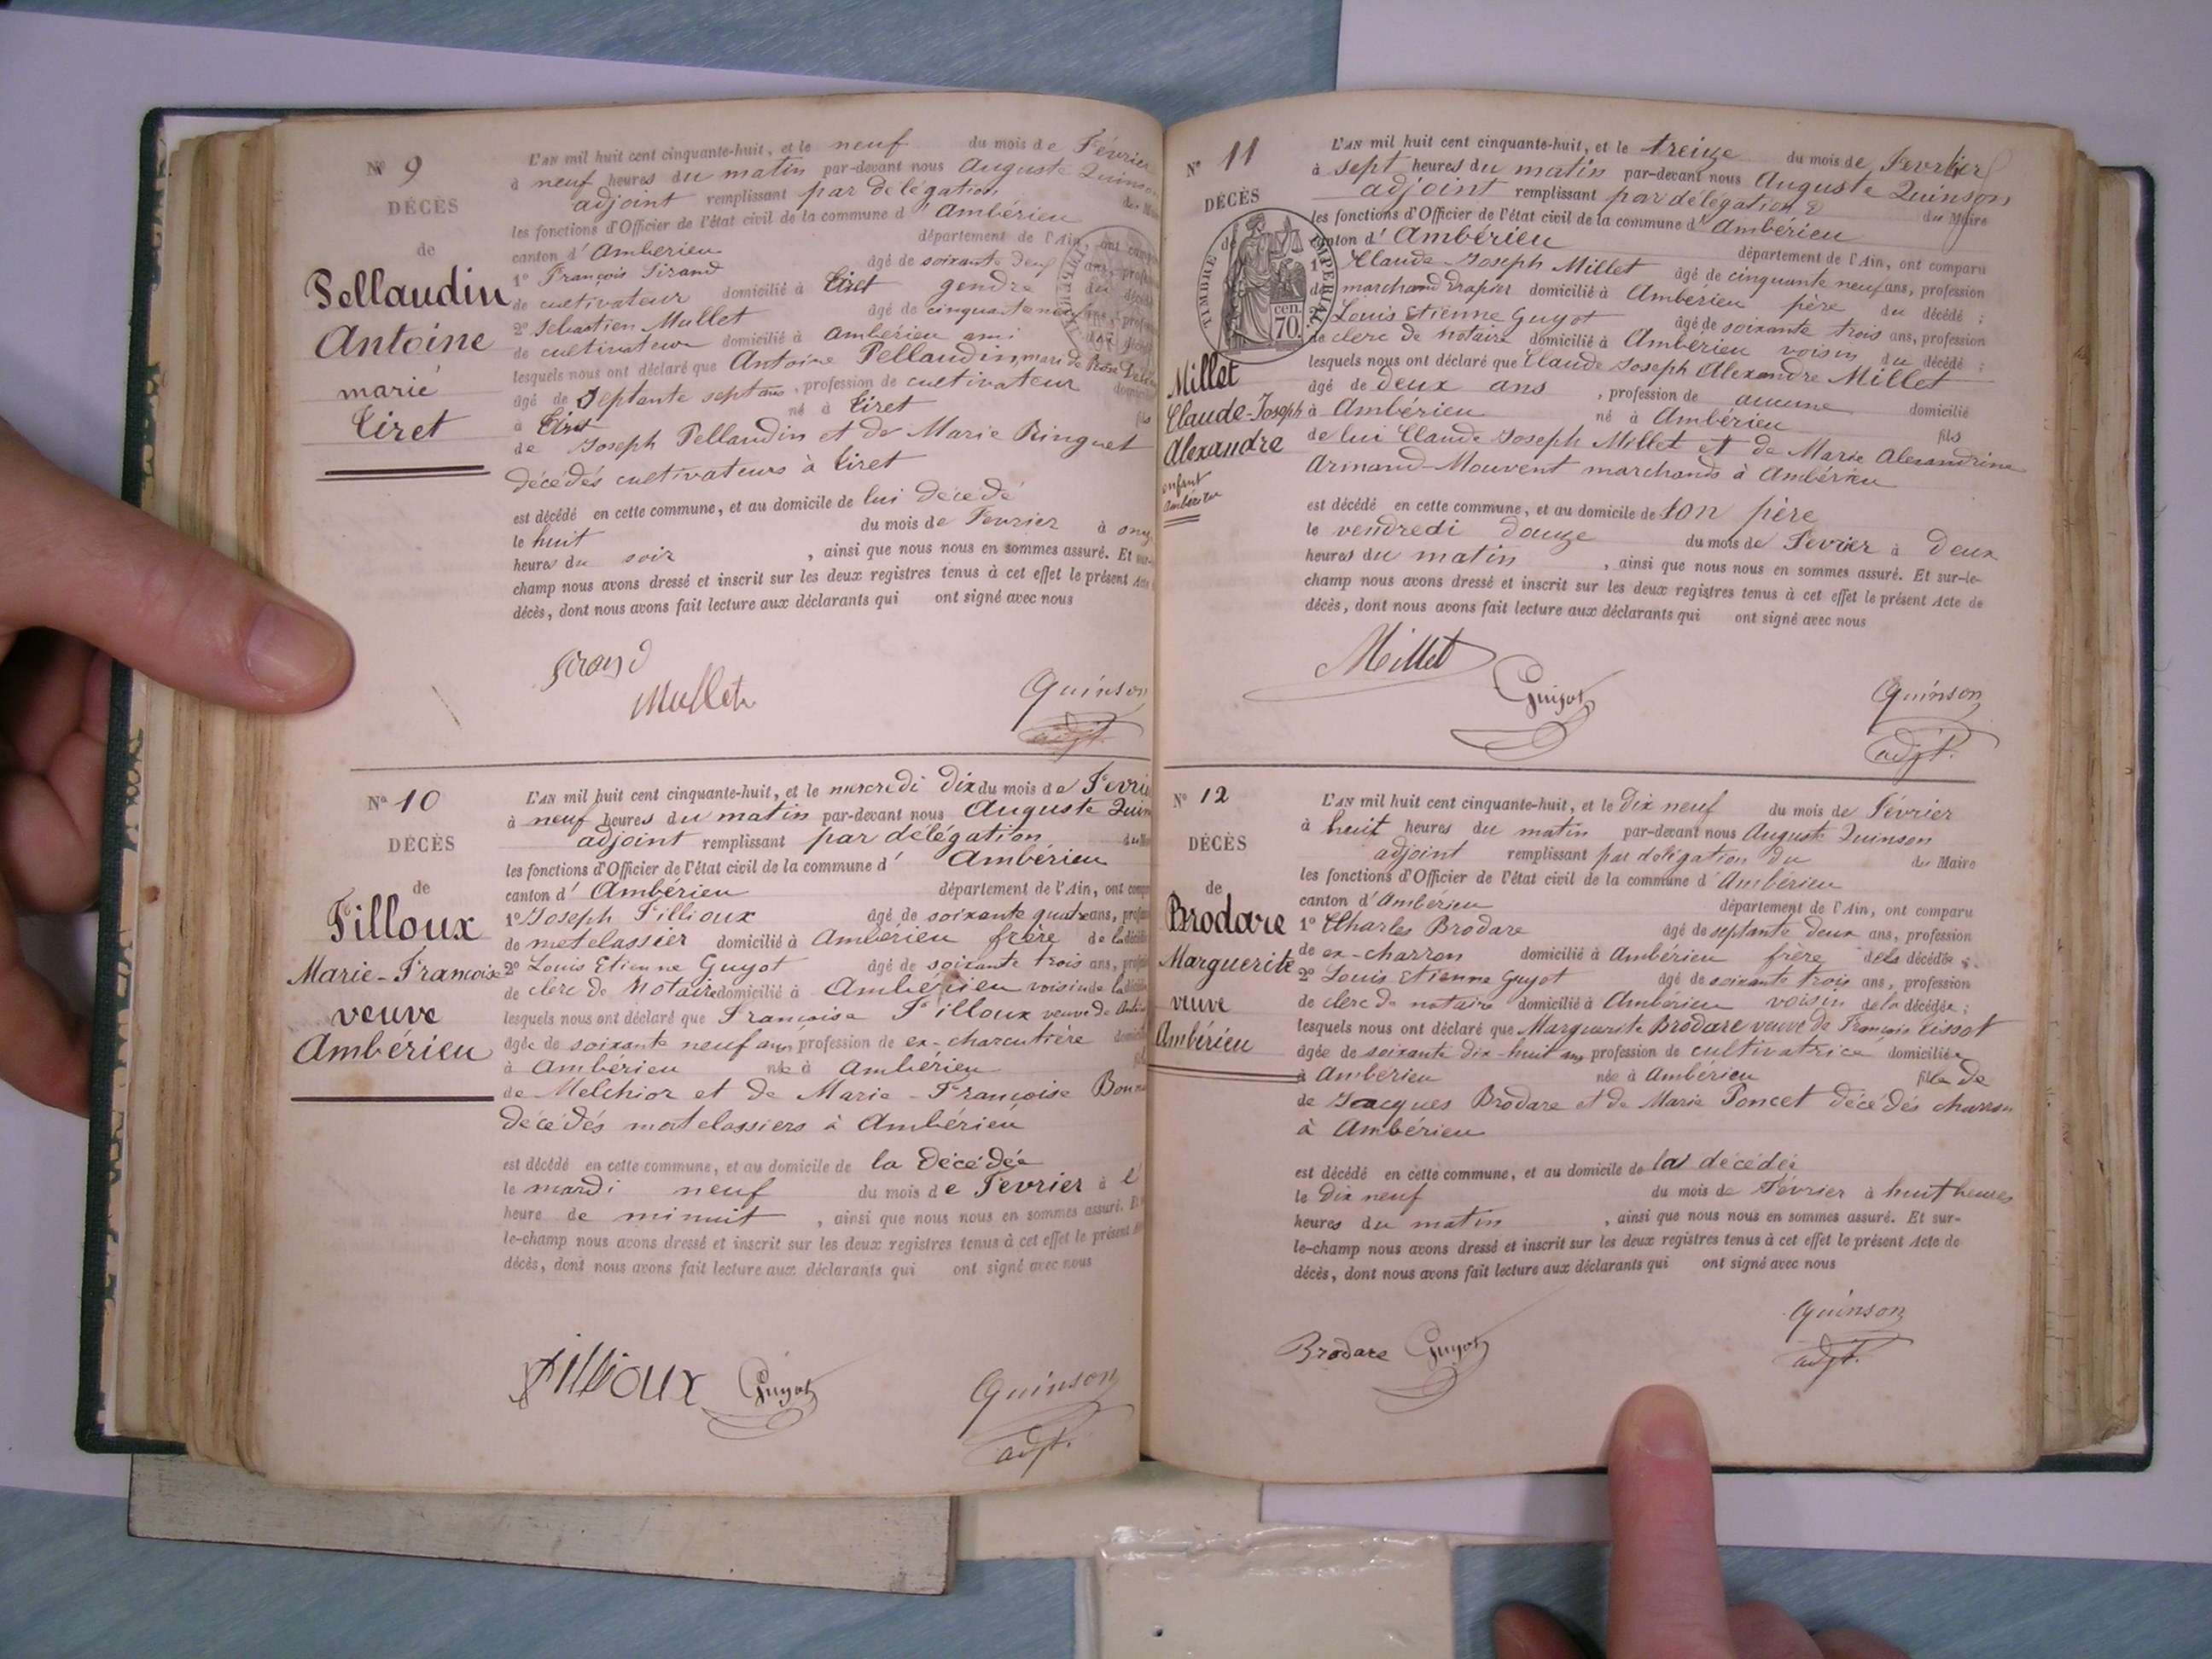 Nº 9
DÉCÈS
de
Pellaudin
Antoine
marié
Tiret
L'AN mil huit cent cinquante-huit, et le neuf du mois de Février
à neuf heures du matin par-devant nous Auguste
adjoint remplissant par délégation
les fonctions d'Officier de l'état civil de la commune d'Ambérieu
canton d'Ambérieu département de l'Ain, ont
1º François Sirand âgé de soixante ans,
de cultivateur domicilié à Tiret gendre
2º Sébastien Mullet âgé de cinquante
de cultivateur domicilié à Ambérieu ami
lesquels nous ont déclaré que Antoine Pellaudin, mari de Rose
âgé de septante sept ans, profession de cultivateur
à Tiret né à Tiret fils
de Joseph Pellaudin et de Marie Ringuet
décédés cultivateurs à Tiret
est décédé en cette commune, et au domicile de lui décédé
le huit du mois de Fevrier à
heures du soir , ainsi que nous nous en sommes assuré. Et sur-
champ nous avons dressé et inscrit sur les deux registres tenus à cet effet le présent Acte
décès, dont nous avons fait lecture aux déclarants qui ont signé avec nous
Sirand
Mullet
Quinson
adjt.
Nº 10
DÉCÈS
de
Filloux
Marie-Francoise
veuve
Ambérieu
L'AN mil huit cent cinquante-huit, et le mercredi dix du mois de
à neuf heures du matin par-devant nous Auguste
adjoint remplissant par délégation
les fonctions d'Officier de l'état civil de la commune d' Ambérieu
canton d' Ambérieu département de l'Ain, ont
1º Joseph Fillioux âgé de soixante quatre ans,
de matelassier domicilié à Ambérieu frère de la
2º Louis Etienne Guyot âgé de soixante trois ans,
de clerc de Notaire domicilié à Ambérieu voisin de la
lesquels nous ont déclaré que Francoise Filloux veuve de
âgée de soixante neuf ans, profession de ex-charcutière
à Ambérieu née à Ambérieu
de Melchior et de Marie-Françoise
décédés matelassiers à Ambérieu
est décédé en cette commune, et au domicile de la décédée
le mardi neuf du mois de Fevrier à l'
heure de minuit , ainsi que nous nous en sommes assuré.
le-champ nous avons dressé et inscrit sur les deux registres tenus à cet effet le présent
décès, dont nous avons fait lecture aux déclarants qui ont signé avec nous
Fillioux
Guyot
Quinson
adjt.
Nº 11
DÉCÈS
de
TIMBRE IMPERIAL
70 cen.
Millet
Claude-Joseph
Alexandre
enfant
Ambérieu
L'AN mil huit cent cinquante-huit, et le treize du mois de Fevrier
à sept heures du matin par-devant nous Auguste Quinson
adjoint remplissant par délégation du Maire
les fonctions d'Officier de l'état civil de la commune d'Ambérieu
canton d'Ambérieu département de l'Ain, ont comparu
1º Claude-Joseph Millet âgé de cinquante neuf ans, profession
de marchand drapier domicilié à Ambérieu père du décédé ;
2º Louis Etienne Guyot âgé de soixante trois ans, profession
de clerc de notaire domicilié à Ambérieu voisin du décédé ;
lesquels nous ont déclaré que Claude Joseph Alexandre Millet
âgé de deux ans , profession de aucune domicilié
à Ambérieu né à Ambérieu fils
de lui Claude Joseph Millet et de Marie Alexandrine
Armand-Mouvent marchands à Ambérieu
est décédé en cette commune, et au domicile de son père
le vendredi douze du mois de Fevrier à deux
heures du matin , ainsi que nous nous en sommes assuré. Et sur-le-
champ nous avons dressé et inscrit sur les deux registres tenus à cet effet le présent Acte de
décès, dont nous avons fait lecture aux déclarants qui ont signé avec nous
Millet
Guyot
Quinson
adjt.
Nº 12
DÉCÈS
de
Brodare
Marguerite
veuve
Ambérieu
L'AN mil huit cent cinquante-huit, et le dix neuf du mois de Février
à huit heures du matin par-devant nous Auguste Quinson
adjoint remplissant par délégation du du Maire
les fonctions d'Officier de l'état civil de la commune d'Ambérieu
canton d'Ambérieu département de l'Ain, ont comparu
1º Charles Brodare âgé de septante deux ans, profession
de ex-charron domicilié à Ambérieu frère de la décédée ;
2º Louis Etienne Guyot âgé de soixante trois ans, profession
de clerc de notaire domicilié à Ambérieu voisin de la décédée ;
lesquels nous ont déclaré que Marguerite Brodare veuve de François Cissot
âgée de soixante dix-huit ans profession de cultivatrice domiciliée
à Ambérieu née à Ambérieu fille de
de Jacques Brodare et de Marie Poncet décédés charron
à Ambérieu
est décédé en cette commune, et au domicile de la décédée
le dix neuf du mois de Février à huit heures
heures du matin , ainsi que nous nous en sommes assuré. Et sur-
le-champ nous avons dressé et inscrit sur les deux registres tenus à cet effet le présent Acte de
décès, dont nous avons fait lecture aux déclarants qui ont signé avec nous
Brodare
Guyot
Quinson
adjt.